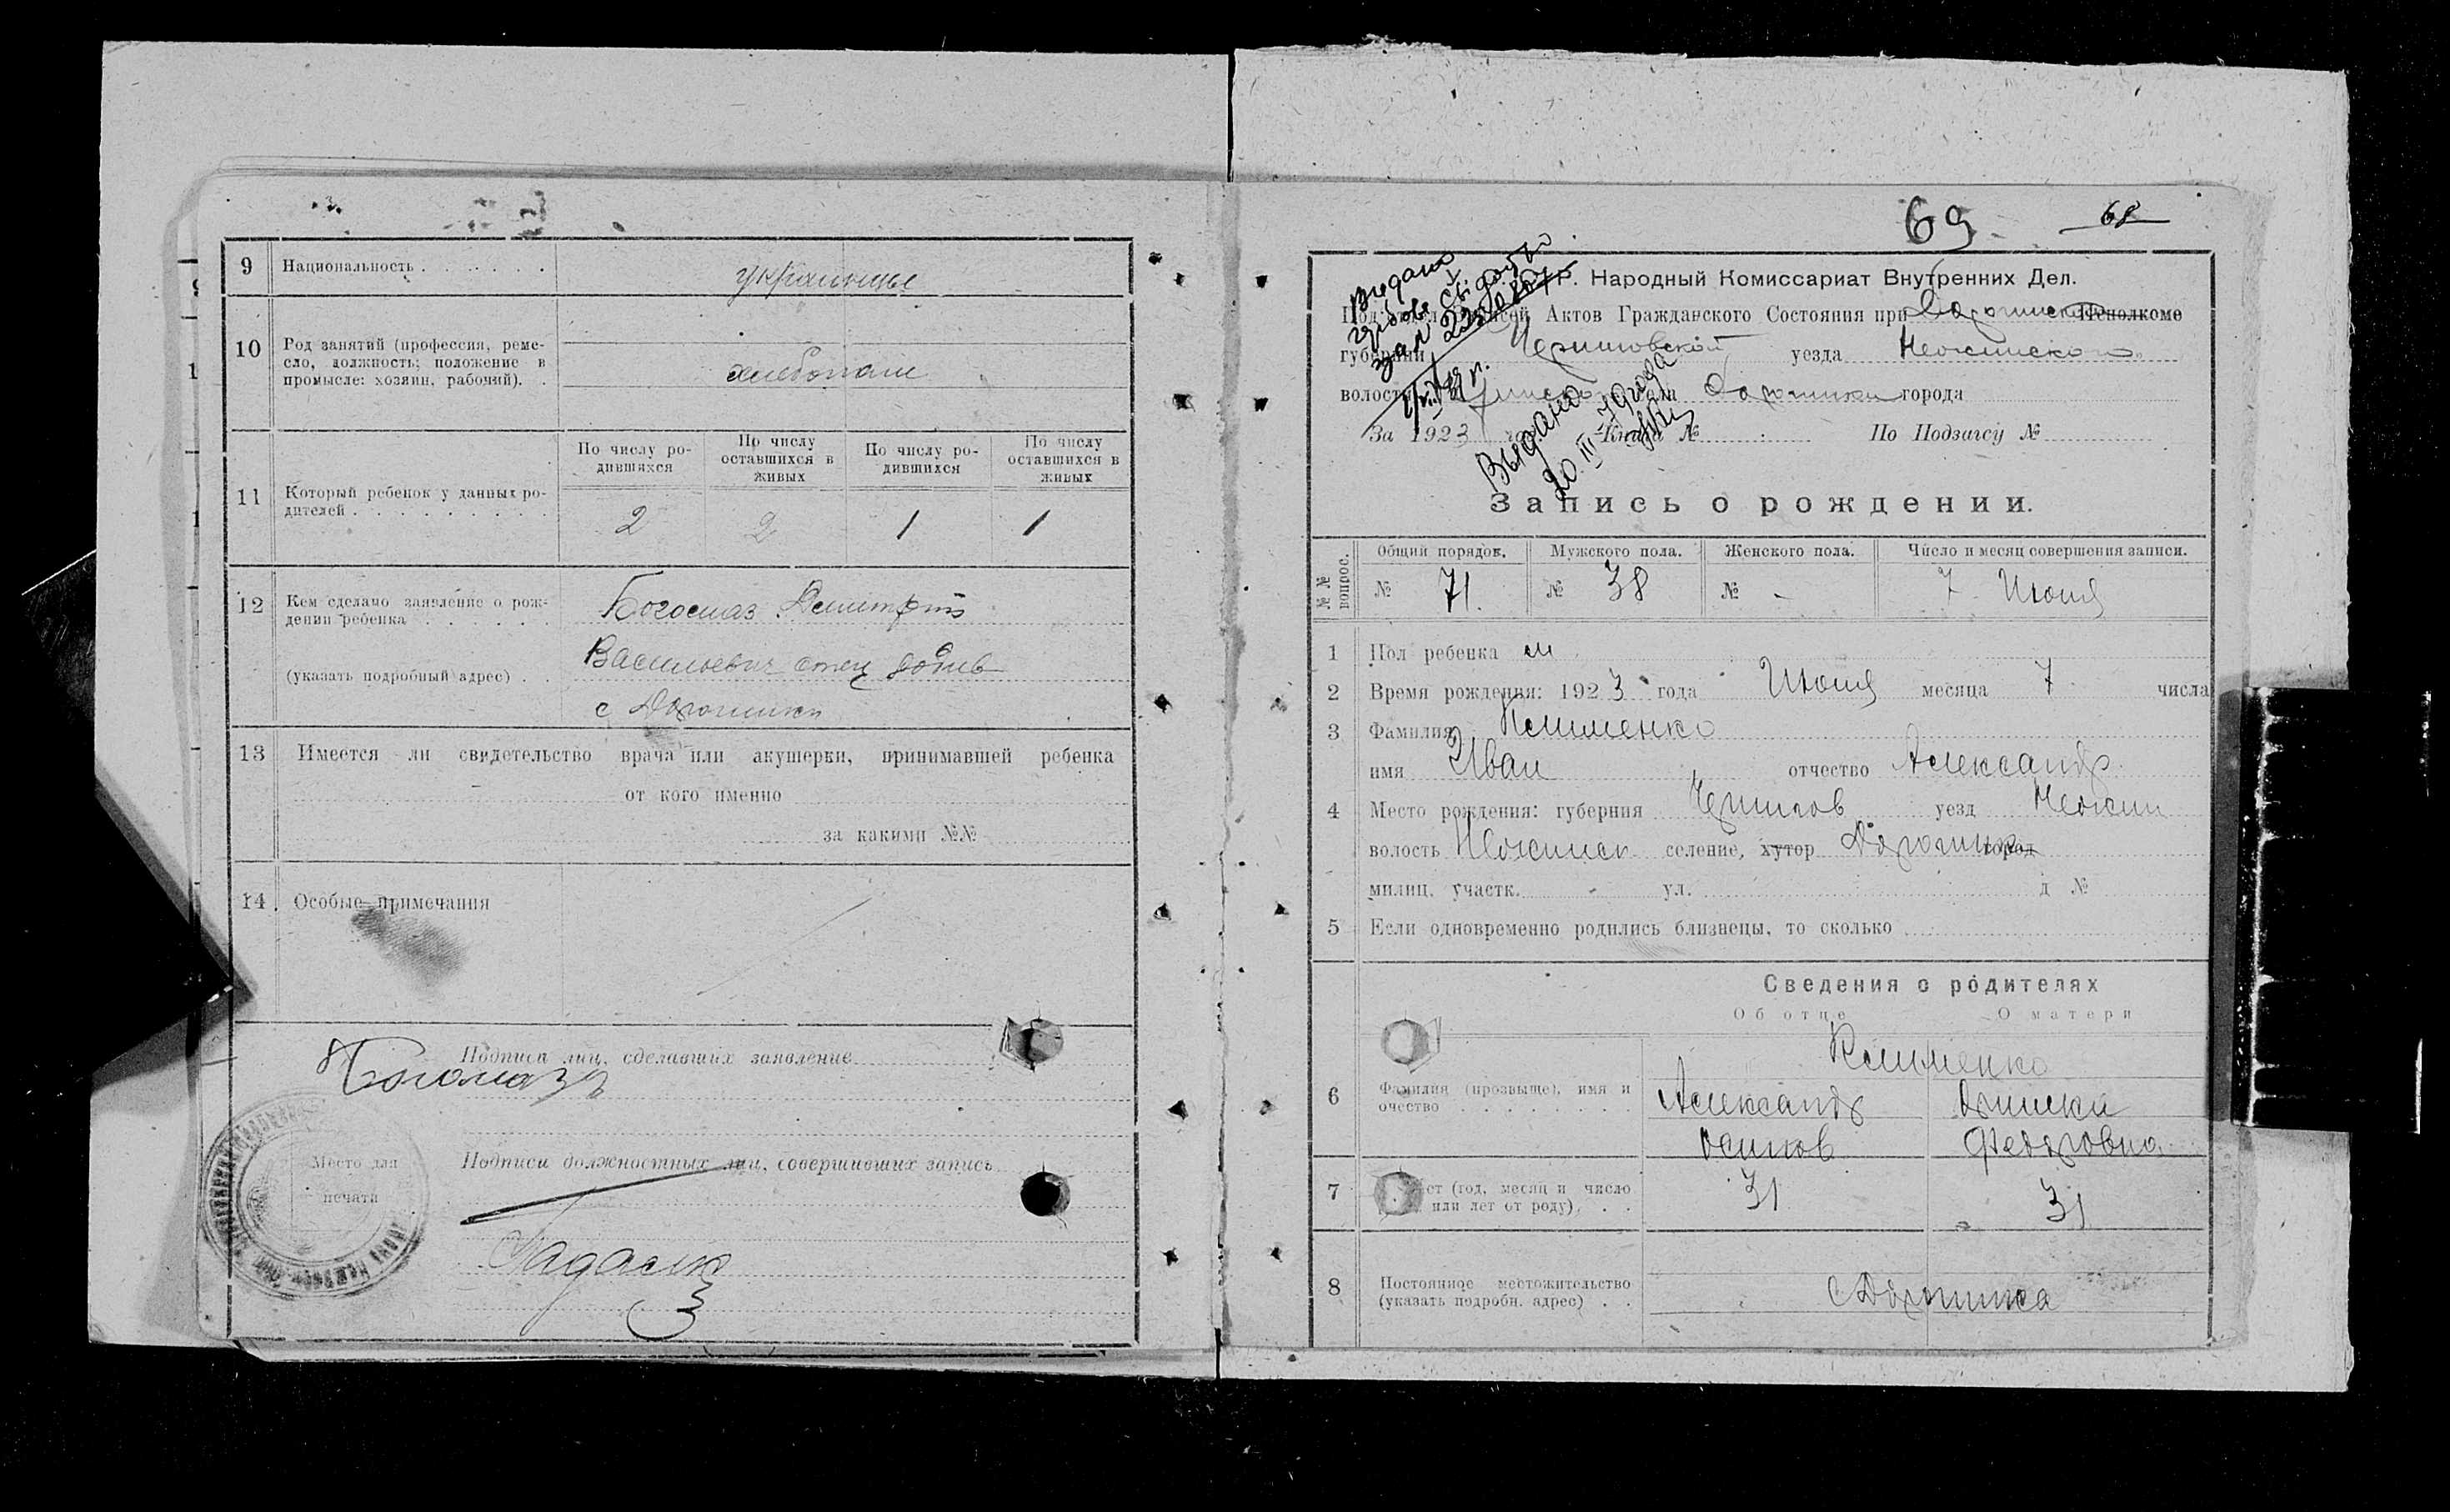 9 Национальность украинцы
10 Род занятий (профессия, реме-
сло, должность; положение в
промысле: хозяин, рабочий). хлебопаш
По числу ро-
дившихся
По числу
оставшихся в
живых
По числу ро-
дившихся
По числу
оставшихся в
живых
11 Который ребенок у данных ро-
дителей
2 2 1 1
12 Кем сделано заявление о рож-
дении ребенка Богомаз Дмитрий
(указать подробный адрес) Васильевич отец
с Дорогинки
13 Имеется ли свидетельство врача или акушерки, принимавшей ребенка
от кого именно
за какими №№
14 Особые примечания
Подписи лиц, сделавших заявление
Богомаз
Подписи должностных лиц, совершивших запись
Место для
печати
69 68
Р. Народный Комиссариат Внутренних Дел.
Актов Гражданского Состояния при Исполкоме
губернии Черниговской уезда Нежинского
волости села Дорогинки города
За 1923 год Книга № По Подзагсу №
Выдано
20.III
Запись о рождении.
№№ вопрос.
Общий порядок. Мужского пола. Женского пола. Число и месяц совершения записи.
№ 71. № 38 № - 7 Июня
1 Пол ребенка м
2 Время рождения: 1923 года Июня месяца 7 числа
3 Фамилия Клименко
имя Иван отчество Александр
4 Место рождения: губерния Чернигов уезд Нежин
волость Нежинск селение, хутор Дорогинка город
милиц. участк. - ул. д №
5 Если одновременно родились близнецы, то сколько
Сведения о родителях
Об отце О матери
Клименко
6 Фамилия (прозвище), имя и
очество
Александр
Осипов Федоровна
7 (год, месяц и число
или лет от роду) 31 31
8 Постоянное местожительство
(указать подробн. адрес) с Дорогинка